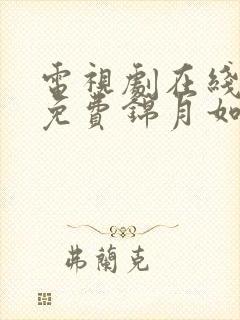 電視劇在綫
免費錦月如
弗蘭克